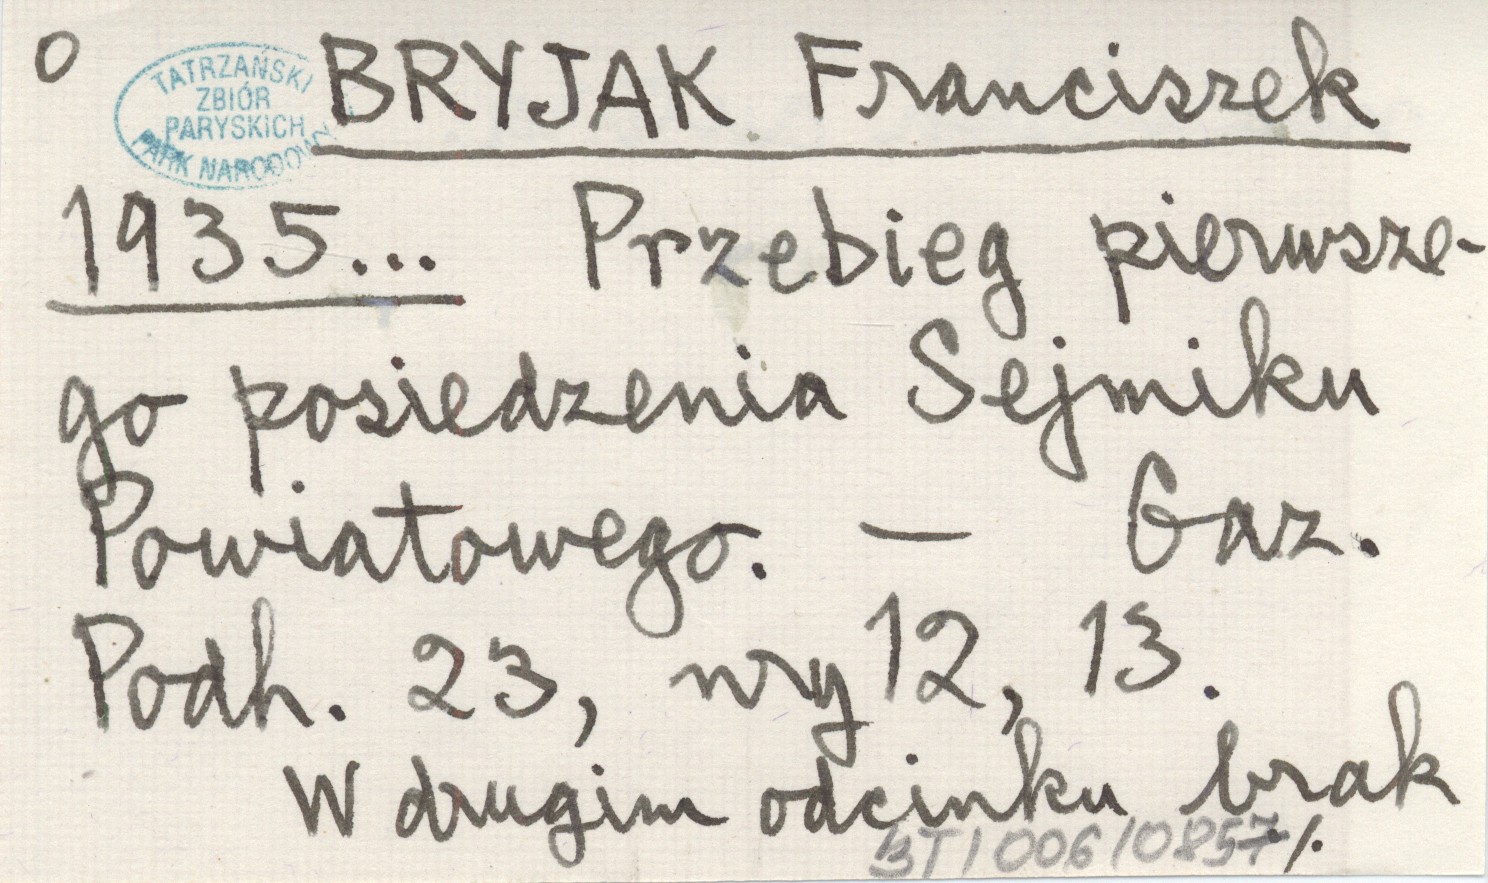 o BRYJAK Franciszek
TATRZAŃSKI
ZBIÓR
PARYSKICH
PARK NARODOWY
1935... Przebieg pierwsze-
go posiedzenia Sejmiku
Powiatowego. — Gaz.
Podh. 23, nry 12, 13.
W drugim odcinku brak
BT1006/0857 ./.